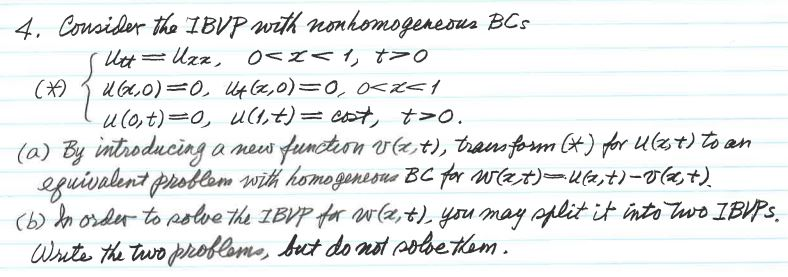 4. Consider the IBVP with nonhomogeneous BCs
(*) { u_tt = u_xx, 0<x<1, t>0
u(x,0)=0, u_t(x,0)=0, 0<x<1
u(0,t)=0, u(1,t)=cost, t>0.
(a) By introducing a new function v(x,t), transform (*) for u(x,t) to an
equivalent problem with homogeneous BC for w(x,t)=u(x,t)-v(x,t).
(b) In order to solve the IBVP for w(x,t), you may split it into two IBVPs.
Write the two problems, but do not solve them.